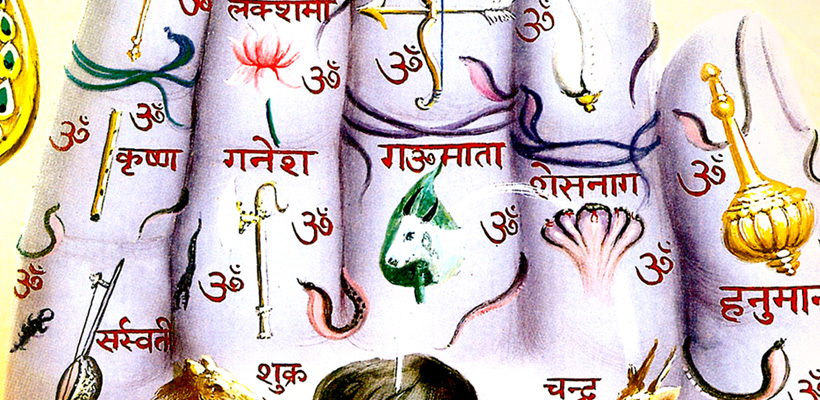 ॐ
लक्शमी
ॐ
ॐ
ॐ
ॐ
ॐ
कृष्ण
गनेश
गऊमाता
शेसनाग
ॐ
ॐ
ॐ
ॐ
ॐ
ॐ
हनुमान
सर्स्वती
शुक्र
चन्द्र
ॐ